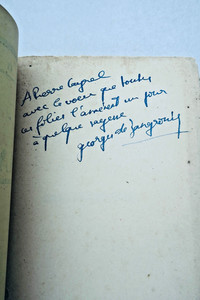 A Pierre Cuynel
avec le voeu que toutes
ces folies l'amènent un jour
à quelque sagesse
georges de